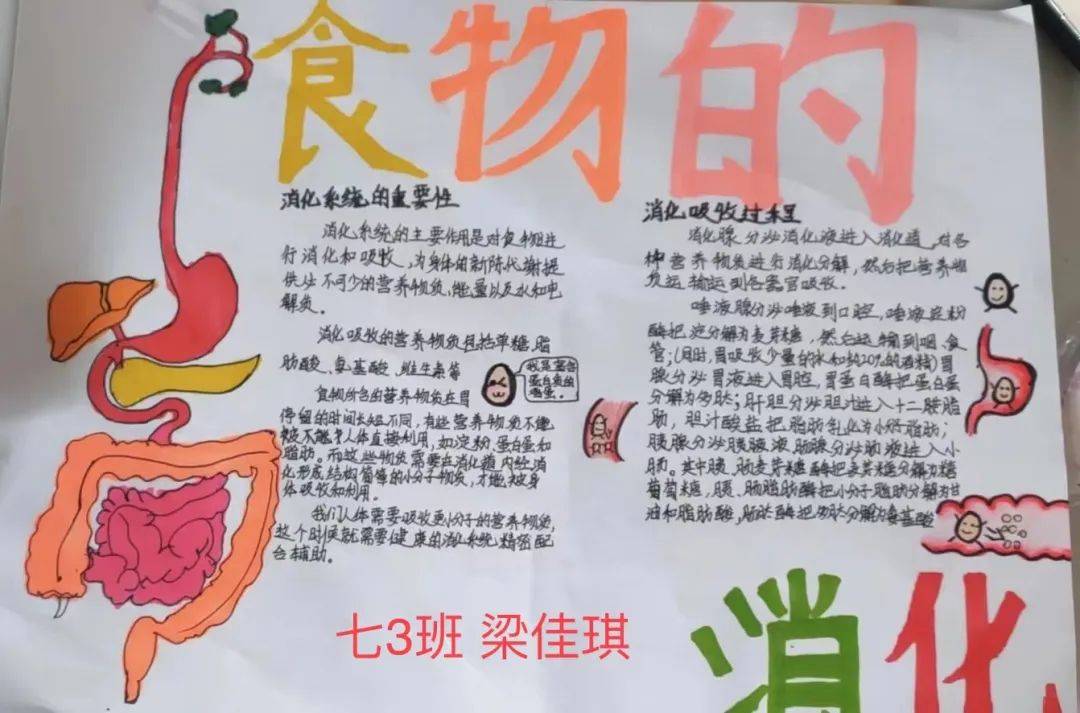 食物的
消化系统的重要性
消化系统的主要作用是对食物进
行消化和吸收,为身体的新陈代谢提
供必不可少的营养物质,能量以及水和电
解质。
消化吸收的营养物质包括单糖、脂
肪酸、氨基酸、维生素等
食物所含的营养物质在胃
停留的时间长短不同,有些营养物质不能
被人体直接利用,如淀粉、蛋白质和
脂肪。而这些物质需要在消化道内经消
化形成结构简单的小分子物质,才能被身
体吸收和利用。
我们人体需要吸收更小分子的营养物质,
这个时候就需要健康的消化系统精密配
合辅助。
我是富含
蛋白质的
鸡蛋。
消化吸收过程
消化腺分泌消化液进入消化道,对各
种营养物质进行消化分解,然后把营养物
质运输运到各器官吸收。
唾液腺分泌唾液到口腔,唾液淀粉
酶把淀粉分解为麦芽糖,然后运输到咽、食
管;(同时,胃吸收少量的水和约20%的酒精)胃
腺分泌胃液进入胃腔,胃蛋白酶把蛋白质
分解为多肽;肝胆分泌胆汁进入十二
肠,胆汁酸盐把脂肪乳化为小
脂肪;
胰腺分泌胰腺液肠腺分泌肠液进入小
肠。其中胰、肠麦芽糖酶把麦芽糖分解为
葡萄糖,胰、肠脂肪酶把小分子脂肪分解为甘
油和脂肪酸,肠肽酶把多肽分解为氨基酸
七3班 梁佳琪
消化